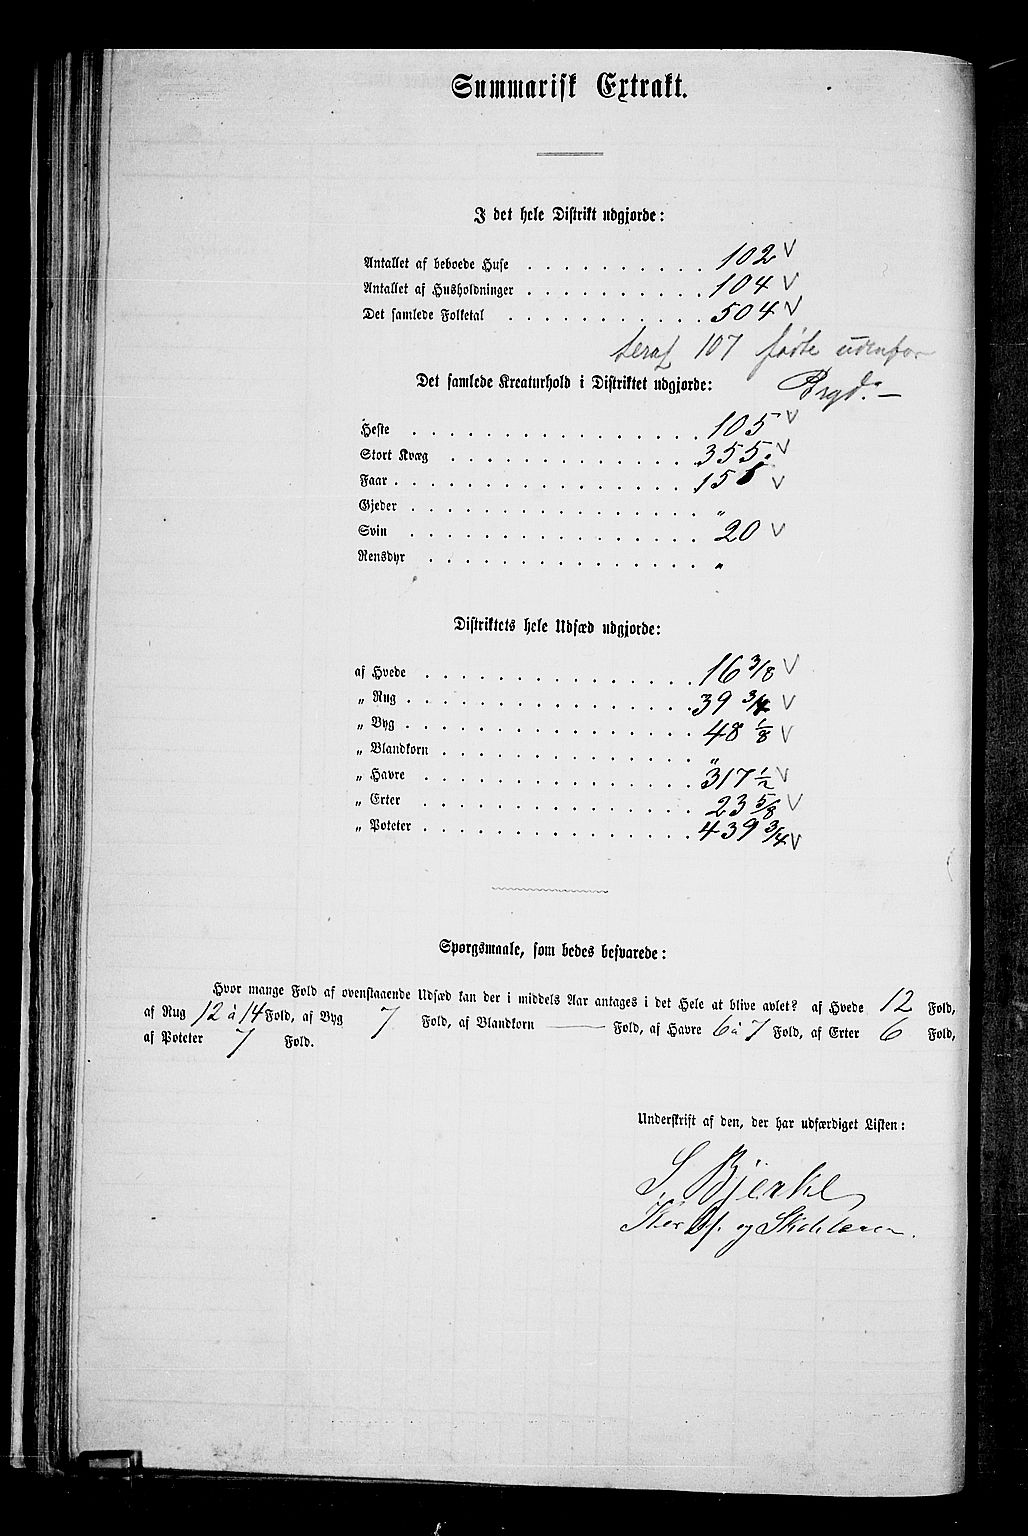 Summarisk Extrakt.
I det hele Distrikt udgjorde:
Antallet af beboede Huse . . . . . . . . . . . 102 V
Antallet af Husholdninger . . . . . . . . . . . 104 V
Det samlede Folketal . . . . . . . . . . . . 504 V
deraf 107 fødte udenfor
Bygd. —
Det samlede Kreaturhold i Distriktet udgjorde:
Heste . . . . . . . . . . . . . . . . . 105 V
Stort Kvæg . . . . . . . . . . . . . . 355. V
Faar . . . . . . . . . . . . . . . . . . 158 V
Gjeder . . . . . . . . . . . . . . . . . "
Svin . . . . . . . . . . . . . . . . . 20 V
Rensdyr . . . . . . . . . . . . . . . . "
Distriktets hele Udsæd udgjorde:
af Hvede . . . . . . . . . . . . . . . 16 3/8 V
„ Rug . . . . . . . . . . . . . . . . . 39 3/4 V
„ Byg . . . . . . . . . . . . . . . . . 48 1/8 V
„ Blandkorn . . . . . . . . . . . . . . "
„ Havre . . . . . . . . . . . . . . . . 317 1/2 V
„ Erter . . . . . . . . . . . . . . . . 23 5/8 V
„ Poteter . . . . . . . . . . . . . . . 439 3/4 V
Spørgsmaale, som bedes besvarede:
Hvor mange Fold af ovenstaaende Udsæd kan der i middels Aar antages i det Hele at blive avlet? af Hvede 12 Fold,
af Rug 12 à 14 Fold, af Byg 7 Fold, af Blandkorn — Fold, af Havre 6 à 7 Fold, af Erter 6 Fold,
af Poteter 7 Fold.
Underskrift af den, der har udfærdiget Listen:
S. Bjerke
og